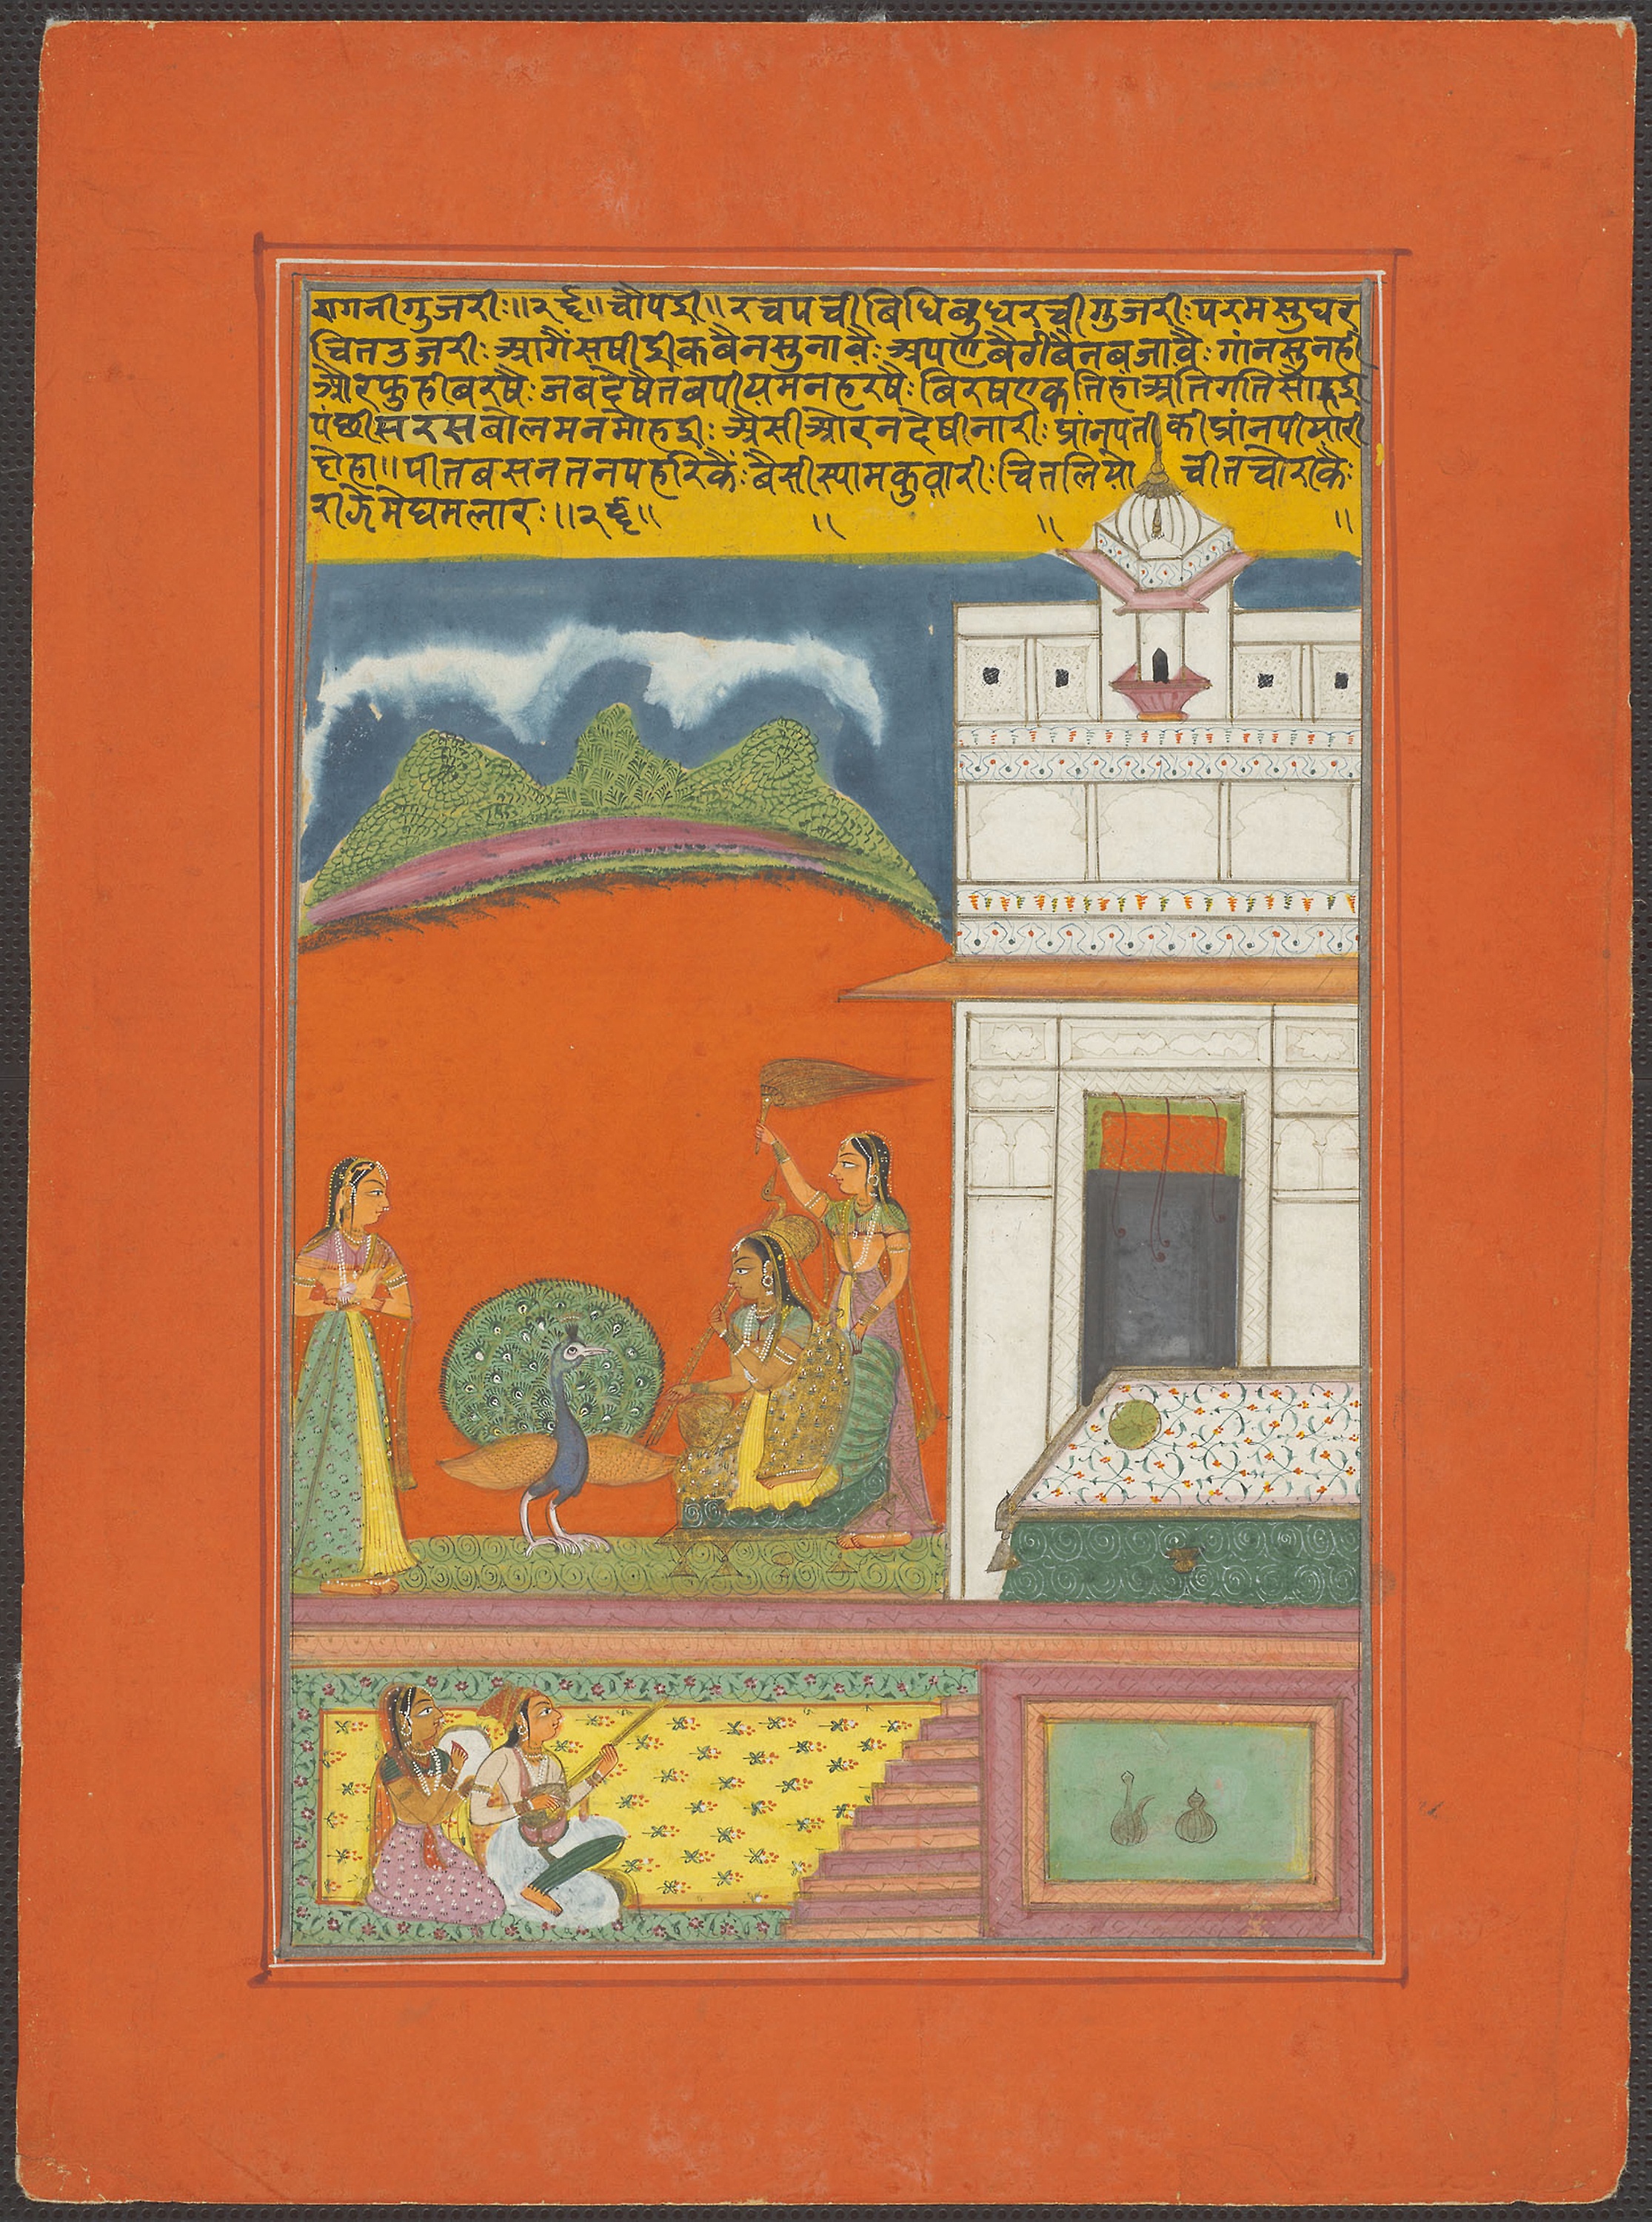 रागनी गुजरीः॥२८॥चौपई॥रचपची बिधि बुधरची गुजरीःपरम सुघर
चित उजरीः आगैं सषी ईक बैन सुनावैः अपणे बैन बजावैः गांन सुनही
और फुही बरषैः जब देषै तब पीय मन हरषैः बिरष एक तिहा अति गति सोहई
पंछी सरस बोल मन मोहईः अैसी और न देषी नारीः प्रांनपती की प्रांन पीयारी
दोहा॥पीत बसन तन पहरिकैंः बैसी स्याम कुवारीःचित लियो चीत चोरिकैः
रीझै मेघमलारः॥२८॥ ॥ ॥ ॥